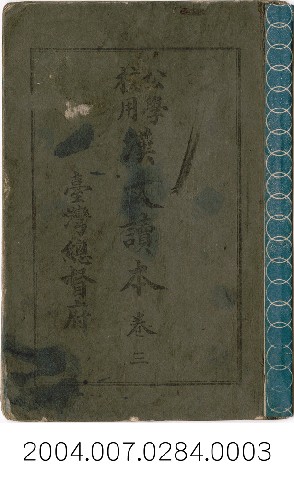 公學
校用
漢文讀本 卷三
臺灣總督府
2004.007.0284.0003